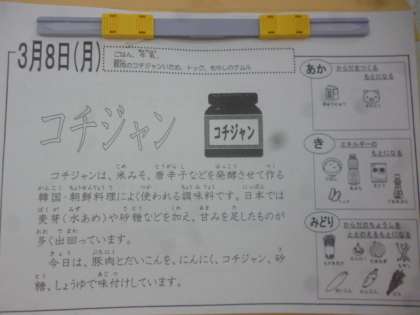 3月8日(月)
ごはん、牛乳、
豚肉のコチジャンいため、トック、もやしのナムル
コチジャン
コチジャン
コチジャンは、米みそ、唐辛子などを発酵させて作る
韓国・朝鮮料理によく使われる調味料です。日本では
麦芽(水あめ)や砂糖などを加え、甘みを足したものが
多く出回っています。
今日は、豚肉とだいこんを、にんにく、コチジャン、砂
糖、しょうゆで味付けしています。
あか
からだをつくる
もとになる
き
エネルギーの
もとになる
みどり
からだのちょうしを
ととのえるもとになる